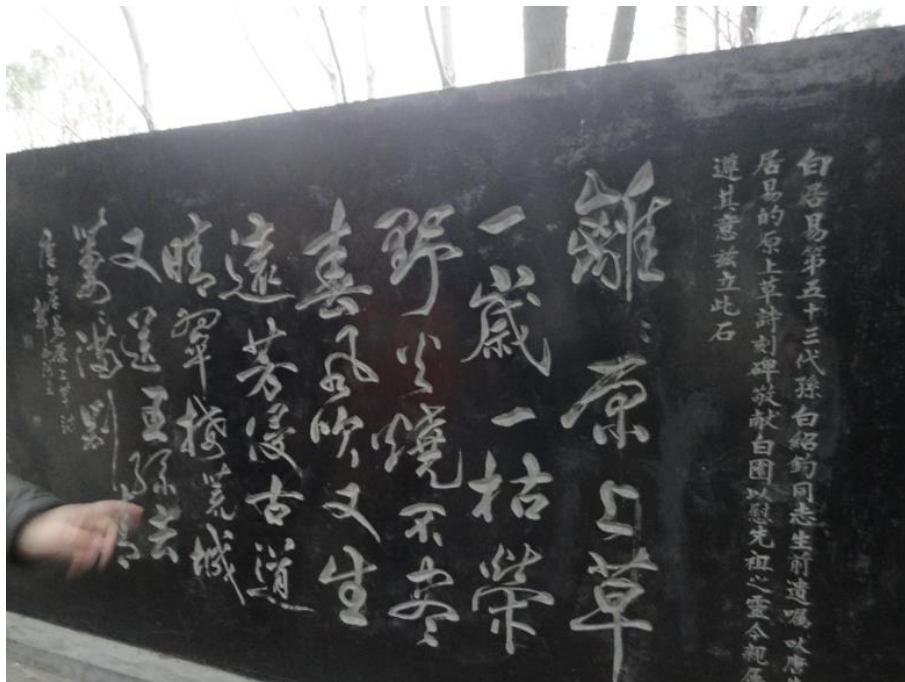 白居易第五十三代孫白紹鈞同志生前遺嘱以唐
居易的原上草詩刻碑敬献白園以慰先祖之靈今親属
遵其意兹立此石
離〻原上草
一歲一枯榮
野火燒不盡
春风吹又生
遠芳侵古道
晴翠接荒城
又送王孫去
萋〻滿別
唐白居易原上草詩